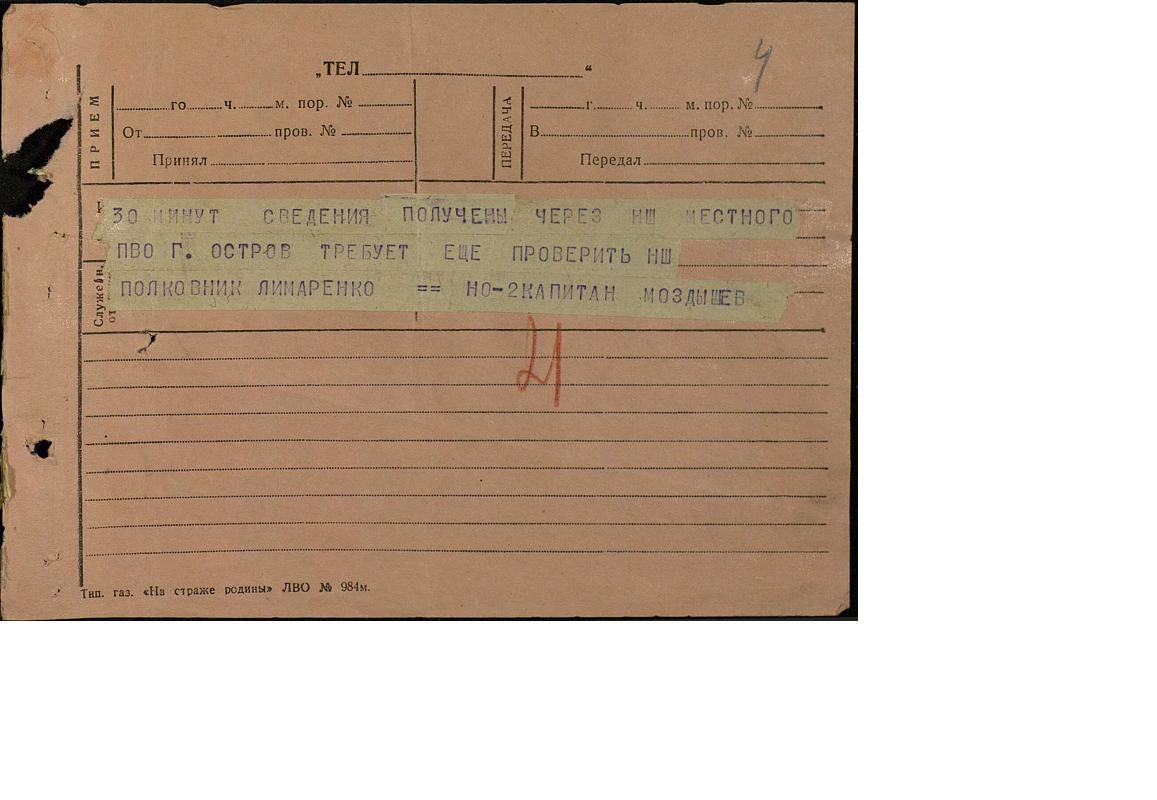 4
„ТЕЛ“
ПРИЕМ
го ч. м. пор. №
От пров. №
Принял
ПЕРЕДАЧА
г. ч. м. пор. №
В пров. №
Передал
30 МИНУТ СВЕДЕНИЯ ПОЛУЧЕНЫ ЧЕРЕЗ НШ МЕСТНОГО
ПВО Г. ОСТРОВ ТРЕБУЕТ ЕЩЕ ПРОВЕРИТЬ НШ
ПОЛКОВНИК ЛИМАРЕНКО == НО-2КАПИТАН МОЗДЫШЕВ
21
Тип. газ. «На страже родины» ЛВО № 984м.